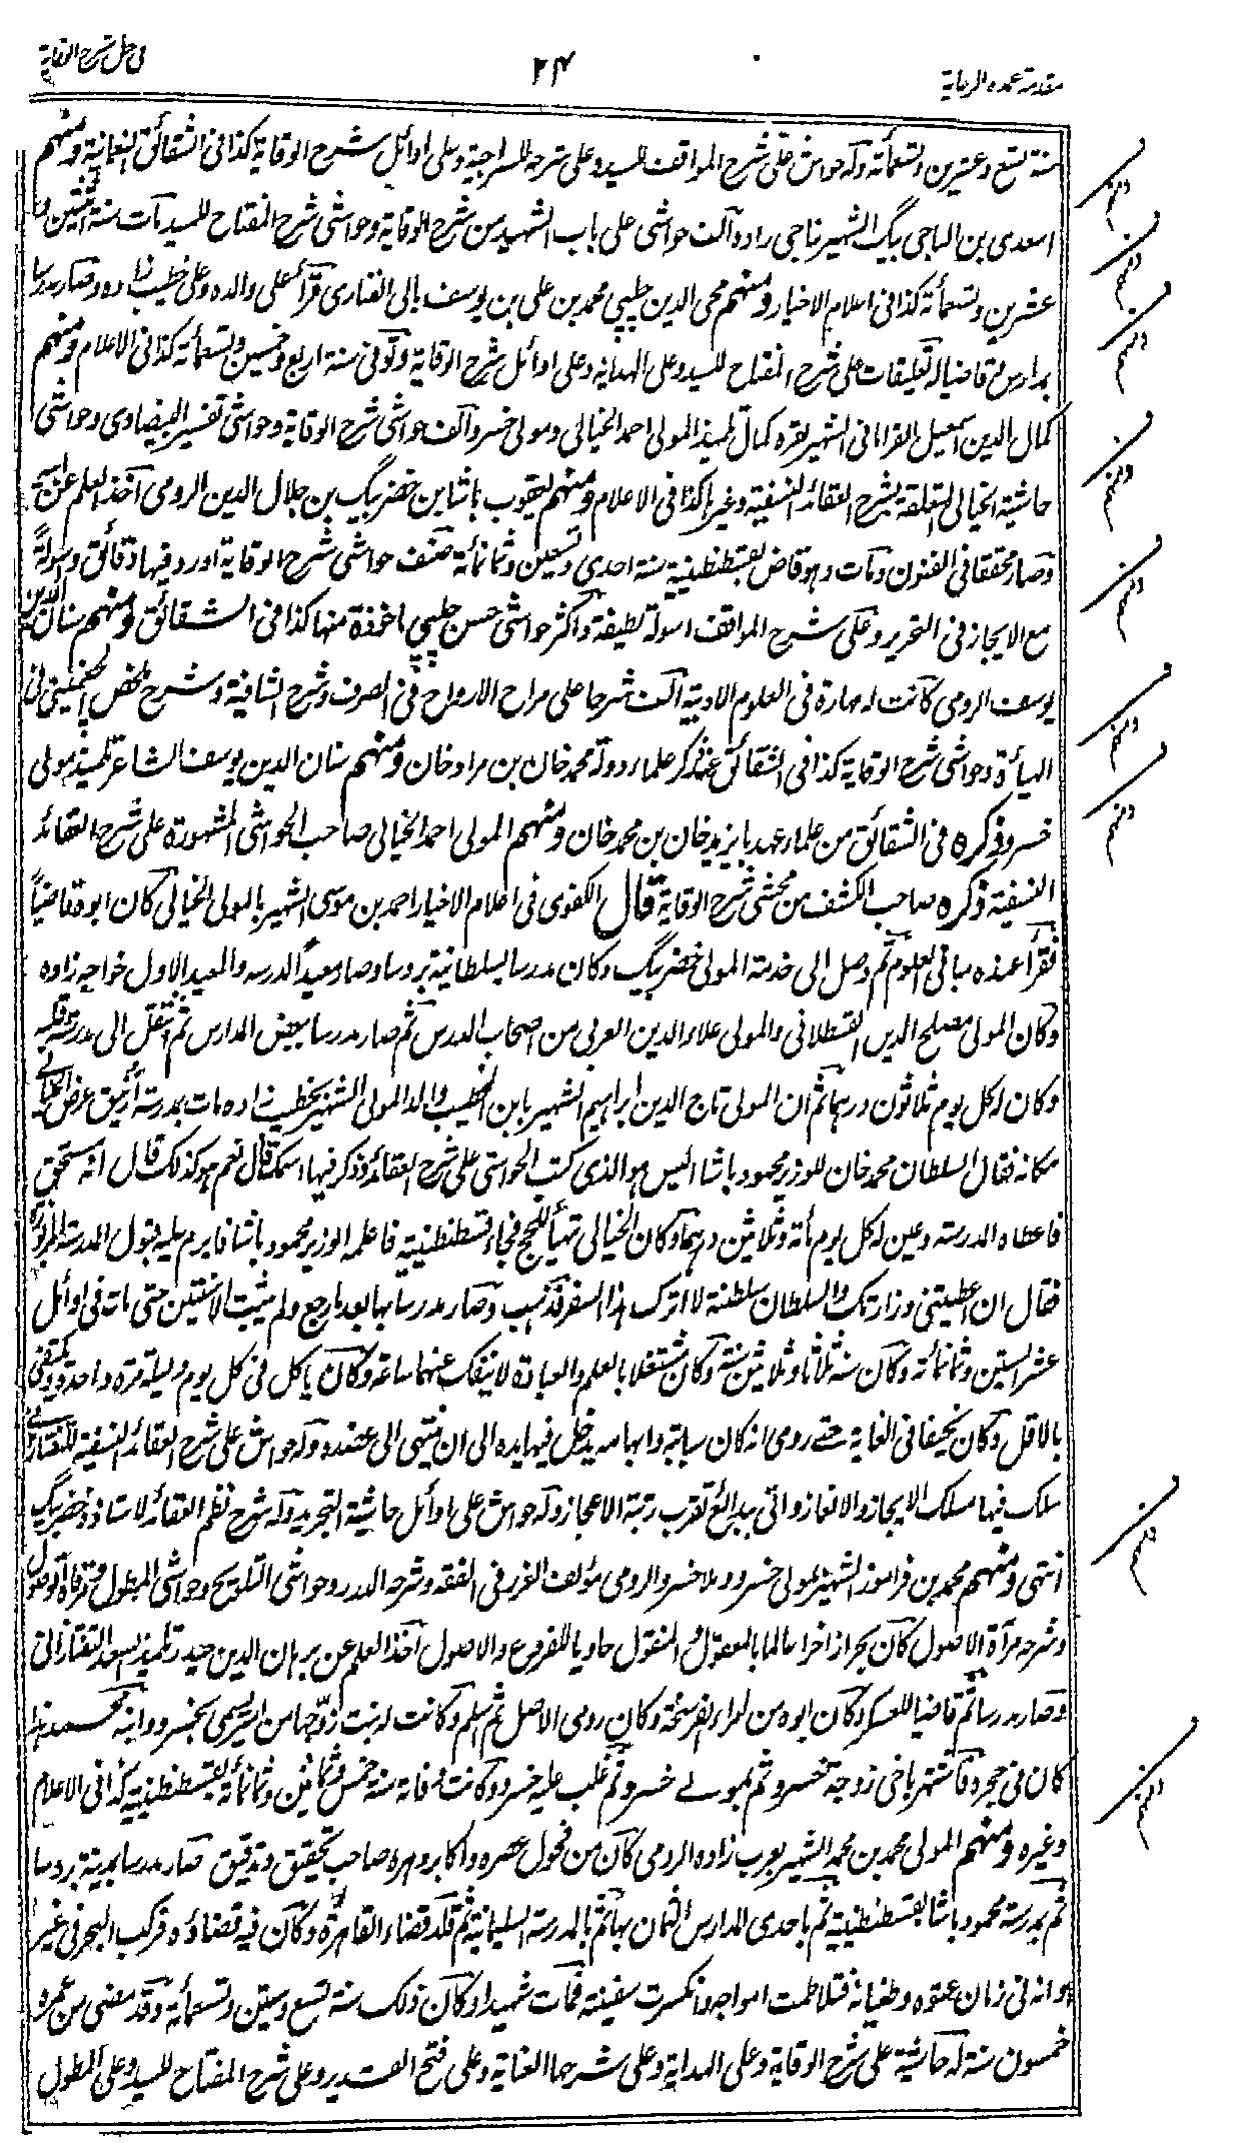 مقدمة عمدة الرعاية
٢٤
في حل شرح الوقاية
سنة تسع وعشرين وتسعمأئة وله حواش على شرح المواقف للسيد وعلى شرحه للسراجية وعلى اوائل شرح الوقاية كذا فى الشقائق النعمانية ومنهم
اسعدى بن الناجى بيگ الشهير بناجى زاده الف حواشى على باب الشهيد من شرح الوقاية وحواشى شرح المفتاح للسيد مات سنة اثنتين و
عشرين وتسعمأئة كذا فى اعلام الاخيار ومنهم محى الدين چلپى محمد بن على بن يوسف بالى الفنارى قرأ على والده وعلى خطيب زاده وصار مدرسا
بمدارس ثم قاضيا له تعليقات على شرح المفتاح للسيد وعلى الهداية وعلى اوائل شرح الوقاية وتوفى سنة اربع وخمسين وتسعمأئة كذا فى الاعلام ومنهم
كمال الدين اسمعيل القرامانى الشهير بقره كمال تلميذ المولى احمد الخيالى ومولى خسرو الف حواشى شرح الوقاية وحواشى تفسير البيضاوى وحواشى
حاشية الخيالى المتعلقة بشرح العقائد النسفية وغير ذلك كذا فى الاعلام ومنهم يعقوب پاشا بن خضر بيگ بن جلال الدين الرومى اخذ العلم عن ابيه
وصار محققا فى الفنون ومات وهو قاض بقسطنطينية سنة احدى وتسعين وثمانمائة صنف حواشى شرح الوقاية اورد فيها دقائق واسولة
مع الايجاز فى التحرير وعلى شرح المواقف اسولة لطيفة واكثر حواشى حسن چلپى ماخوذة منها كذا فى الشقائق ومنهم سنان الدين
يوسف الرومى كانت له مهارة فى العلوم الادبية الف شرحا على مراح الارواح فى الصرف وشرح الشافية وشرح ملخص الچغمينى فى
الهيأة وحواشى شرح الوقاية كذا فى الشقائق عند ذكر علماء دولة محمد خان بن مراد خان ومنهم سنان الدين يوسف الشاعر تلميذ مولى
خسرو ذكره فى الشقائق من علماء عهد بايزيد خان بن محمد خان ومنهم المولى احمد الخيالى صاحب الحواشى المشهورة على شرح العقائد
النسفية ذكره صاحب الكشف من محشى شرح الوقاية قال الكفوى فى اعلام الاخيار احمد بن موسى الشهير بالمولى الخيالى كان ابوه قاضياً
فقرأ عنده مبانى العلوم ثم وصل الى خدمة المولى خضر بيگ وكان مدرسا بسلطانية بروسا وصار معيداً لدرسه والمعيد الاول خواجه زاده
وكان المولى مصلح الدين القسطلانى والمولى علاء الدين العربى من اصحاب الدرس ثم صار مدرسا ببعض المدارس ثم انتقل الى مدرسة فلبه
وكان له كل يوم ثلاثون درهما ثم ان المولى تاج الدين ابراهيم الشهير بابن الخطيب والد المولى الشهير بخطيب زاده مات بمدرسة ازنيق عرض الخيالى
مكانه فقال السلطان محمد خان للوزير محمود پاشا اليس هو الذى كتب الحواشى على شرح العقائد وذكر فيها اسمك قال نعم هو كذلك قال انه مستحق
فاعطاه المدرسة وعين له كل يوم مأئة وثلاثين درهما وكان الخيالى تهيأ للحج فجاء قسطنطينية فاعلمه الوزير محمود پاشا فابرم عليه قبول المدرسة المزبورة
فقال ان اعطيتنى وزارتك والسلطان سلطنته لا اترك هذا السفر فذهب وصار مدرسا بها بعد ما رجع ولم يثبت الا سنتين حتى مات فى اوائل
عشر الستين وثمانمائة وكان سنه ثلاثا وثلاثين سنة وكان مشتغلا بالعلم والعبادة لا ينفك عنهما ساعة وكان ياكل فى كل يوم وليلة مرة واحدة ويكتفى
بالاقل وكان نحيفا فى الغاية حتى روى انه كان سبابته وابهامه يدخل فيها يده الى ان ينتهى الى عضده وله حواش على شرح العقائد النسفية للتفتازانى
سلك فيها مسلك الايجاز والالغاز واتى ببدائع تقرب رتبة الاعجاز وله حواش على اوائل حاشية التجريد وله شرح نظم العقائد لاستاذه خضر بيگ
انتهى ومنهم محمد بن فراموز الشهير بمولى خسرو وملا خسرو الرومى مؤلف الغرر فى الفقه وشرحه الدرر وحواشى التلويح وحواشى المطول ومرقاة الوصول
وشرحه مرآة الاصول كان بحرا زاخرا عالما بالمعقول والمنقول حاويا للفروع والاصول اخذ العلم عن برهان الدين حيدر تلميذ سعد التفتازانى
وصار مدرسا ثم قاضيا للعسكر وكان ابوه من امراء الفرسخة وكان رومى الاصل ثم اسلم وكانت له بنت زوّجها من امير يسمى بخسرو وابنه محمد هذا
كان فى حجره فاشتهر باخى زوجة خسرو ثم بمولى خسرو ثم غلب عليه خسرو وكانت وفاته سنة خمس وثمانين وثمانمأئة بقسطنطينية كذا فى الاعلام
وغيره ومنهم المولى محمد بن محمد الشهير بعرب زاده الرومى كان من فحول عصره واكابر دهره صاحب تحقيق وتدقيق صار مدرسا بمدينة بروسا
ثم بمدرسة محمود پاشا بقسطنطينية ثم باحدى المدارس الثمان بها ثم بالمدرسة السليمانية ثم قلد قضاء القاهرة وكان فيه قضاؤه فركب البحر فى غير
اوانه فى زمان عتوه وطغيانه فتلاطمت امواجه وانكسرت سفينته فمات شهيدا وكان ذلك سنة تسع وستين وتسعمأئة وقد مضى من عمره
خمسون سنة له حاشية على شرح الوقاية وعلى الهداية وعلى شرحها العناية وعلى فتح القدير وعلى شرح المفتاح للسيد وعلى المطول